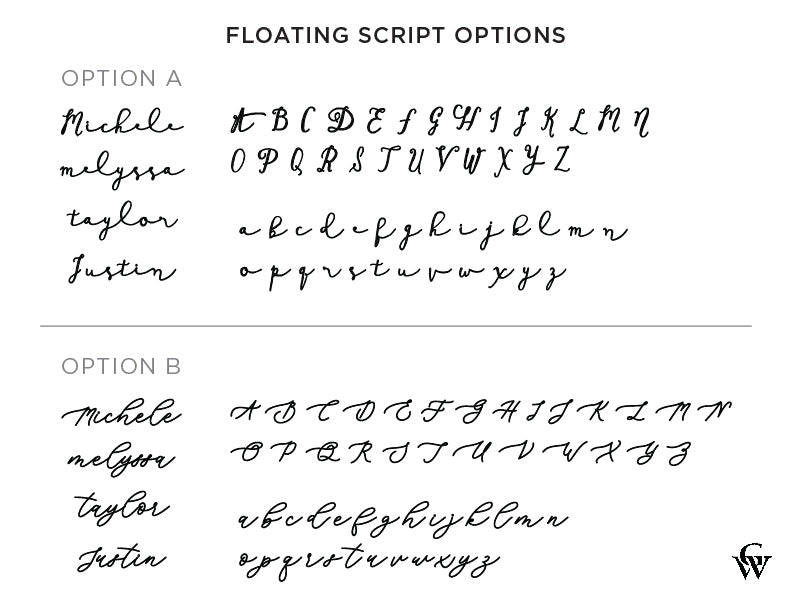 FLOATING SCRIPT OPTIONS
OPTION A
Michele
A B C D E F G H I J K L M N
melyssa
O P Q R S T U V W X Y Z
taylor
a b c d e f g h i j k l m n
Justin
o p q r s t u v w x y z
OPTION B
Michele
A B C D E F G H I J K L M N
melyssa
O P Q R S T U V W X Y Z
taylor
a b c d e f g h i j k l m n
Justin
o p q r s t u v w x y z
GW